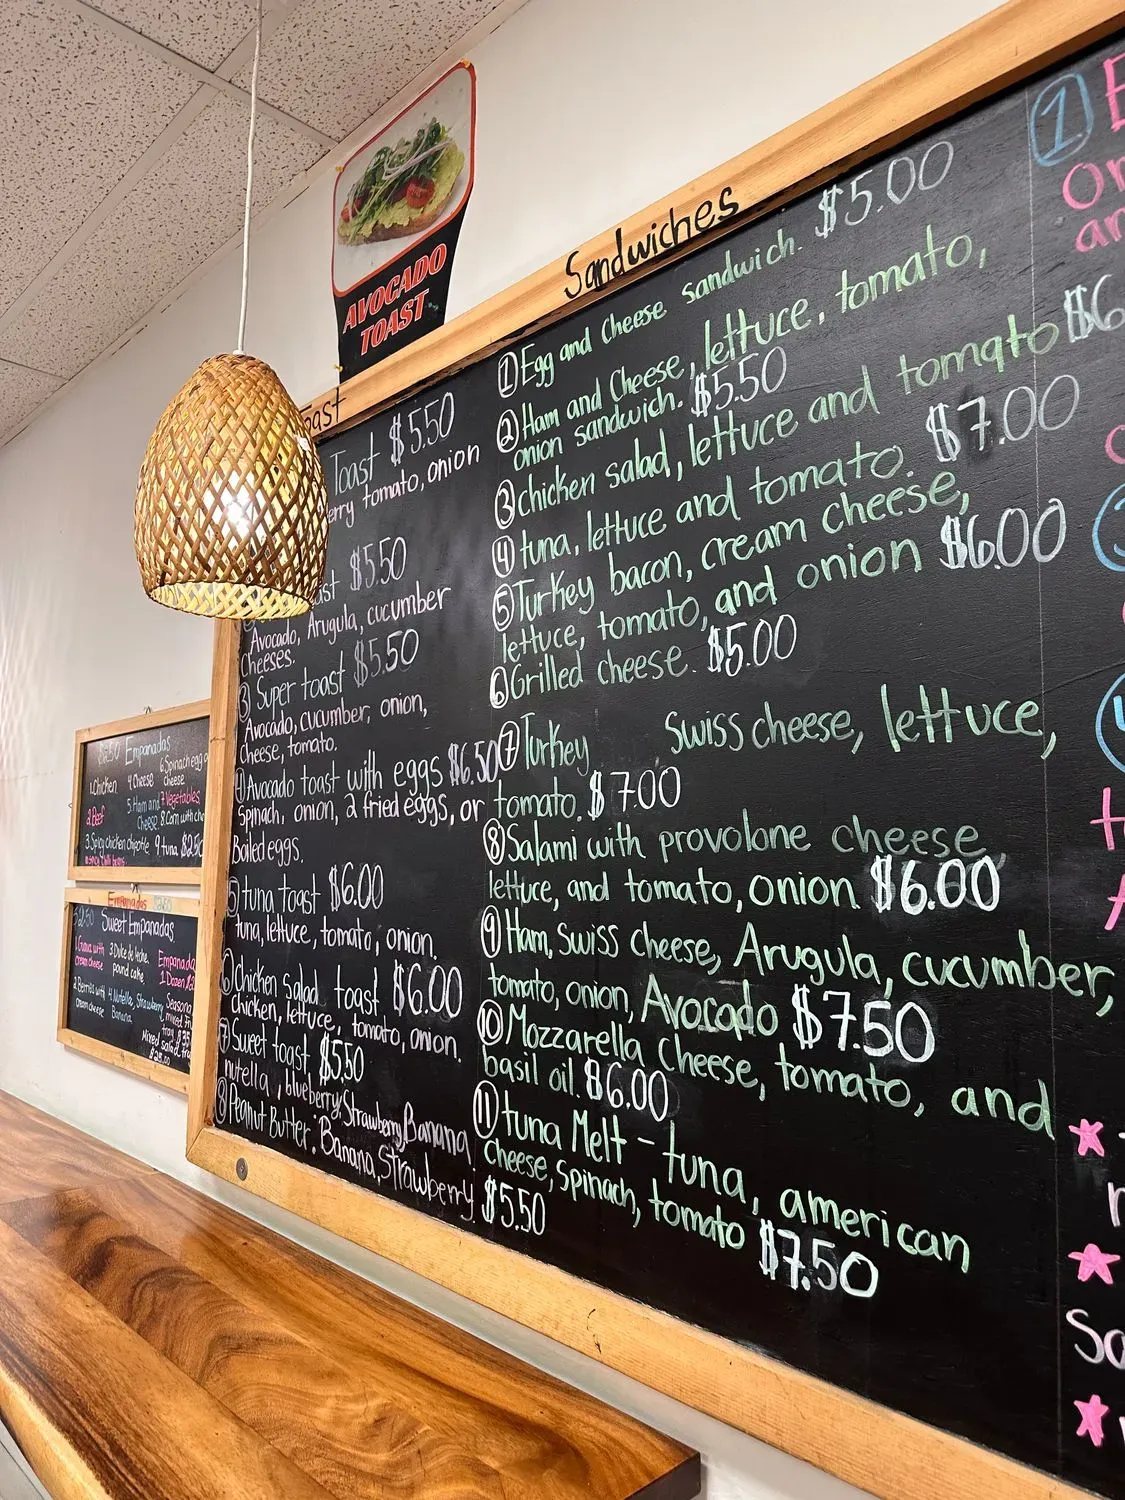 AVOCADO
TOAST
Sandwiches
① Egg and Cheese sandwich. $5.00
② Ham and Cheese, lettuce, tomato,
onion sandwich. $5.50
③ chicken salad, lettuce and tomato $6
④ tuna, lettuce and tomato. $7.00
⑤ Turkey bacon, cream cheese,
lettuce, tomato, and onion $6.00
⑥ Grilled cheese. $5.00
⑦ Turkey Swiss cheese, lettuce,
tomato. $7.00
⑧ Salami with provolone cheese
lettuce, and tomato, onion $6.00
⑨ Ham, Swiss cheese, Arugula, cucumber,
tomato, onion, Avocado $7.50
⑩ Mozzarella cheese, tomato, and
basil oil. $6.00
⑪ tuna Melt - tuna, american
cheese, spinach, tomato $7.50
Toast $5.50
tomato, onion
$5.50
Avocado, Arugula, cucumber
cheeses.
③ Super toast $5.50
Avocado, cucumber, onion,
cheese, tomato.
④ Avocado toast with eggs $6.50
Spinach, onion, 2 fried eggs, or
Boiled eggs.
⑤ tuna toast $6.00
tuna, lettuce, tomato, onion.
⑥ Chicken salad toast $6.00
chicken, lettuce, tomato, onion.
⑦ Sweet toast $5.50
nutella, blueberry, Strawberry, Banana
⑧ Peanut Butter: Banana, Strawberry $5.50
Empanadas
1. Chicken
2. Beef
3. Spicy chicken chipotle
4 Cheese
5. Ham and
Cheese
6. Spinach egg
cheese
7. Vegetables
8. Corn with
9 tuna $2.50
Empanadas
Sweet Empanadas
1. Guava with
cream cheese
2. Berries with
cream cheese
3. Dulce de leche,
pound cake
4. Nutella, Strawberry
Banana
Empanada
1 Dozen
①